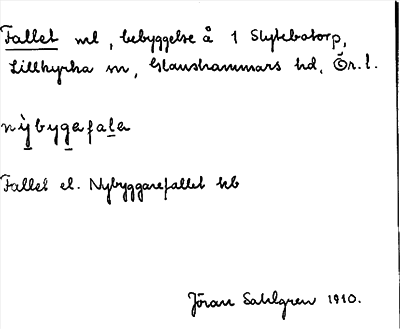 Fallet ml, bebyggelse å 1 Skytebotorp,
Lillkyrka sn, Glanshammars hd, Ör. l.
nỳbygafala
Fallet el. Nybyggarefallet kb
Jöran Sahlgren 1910.